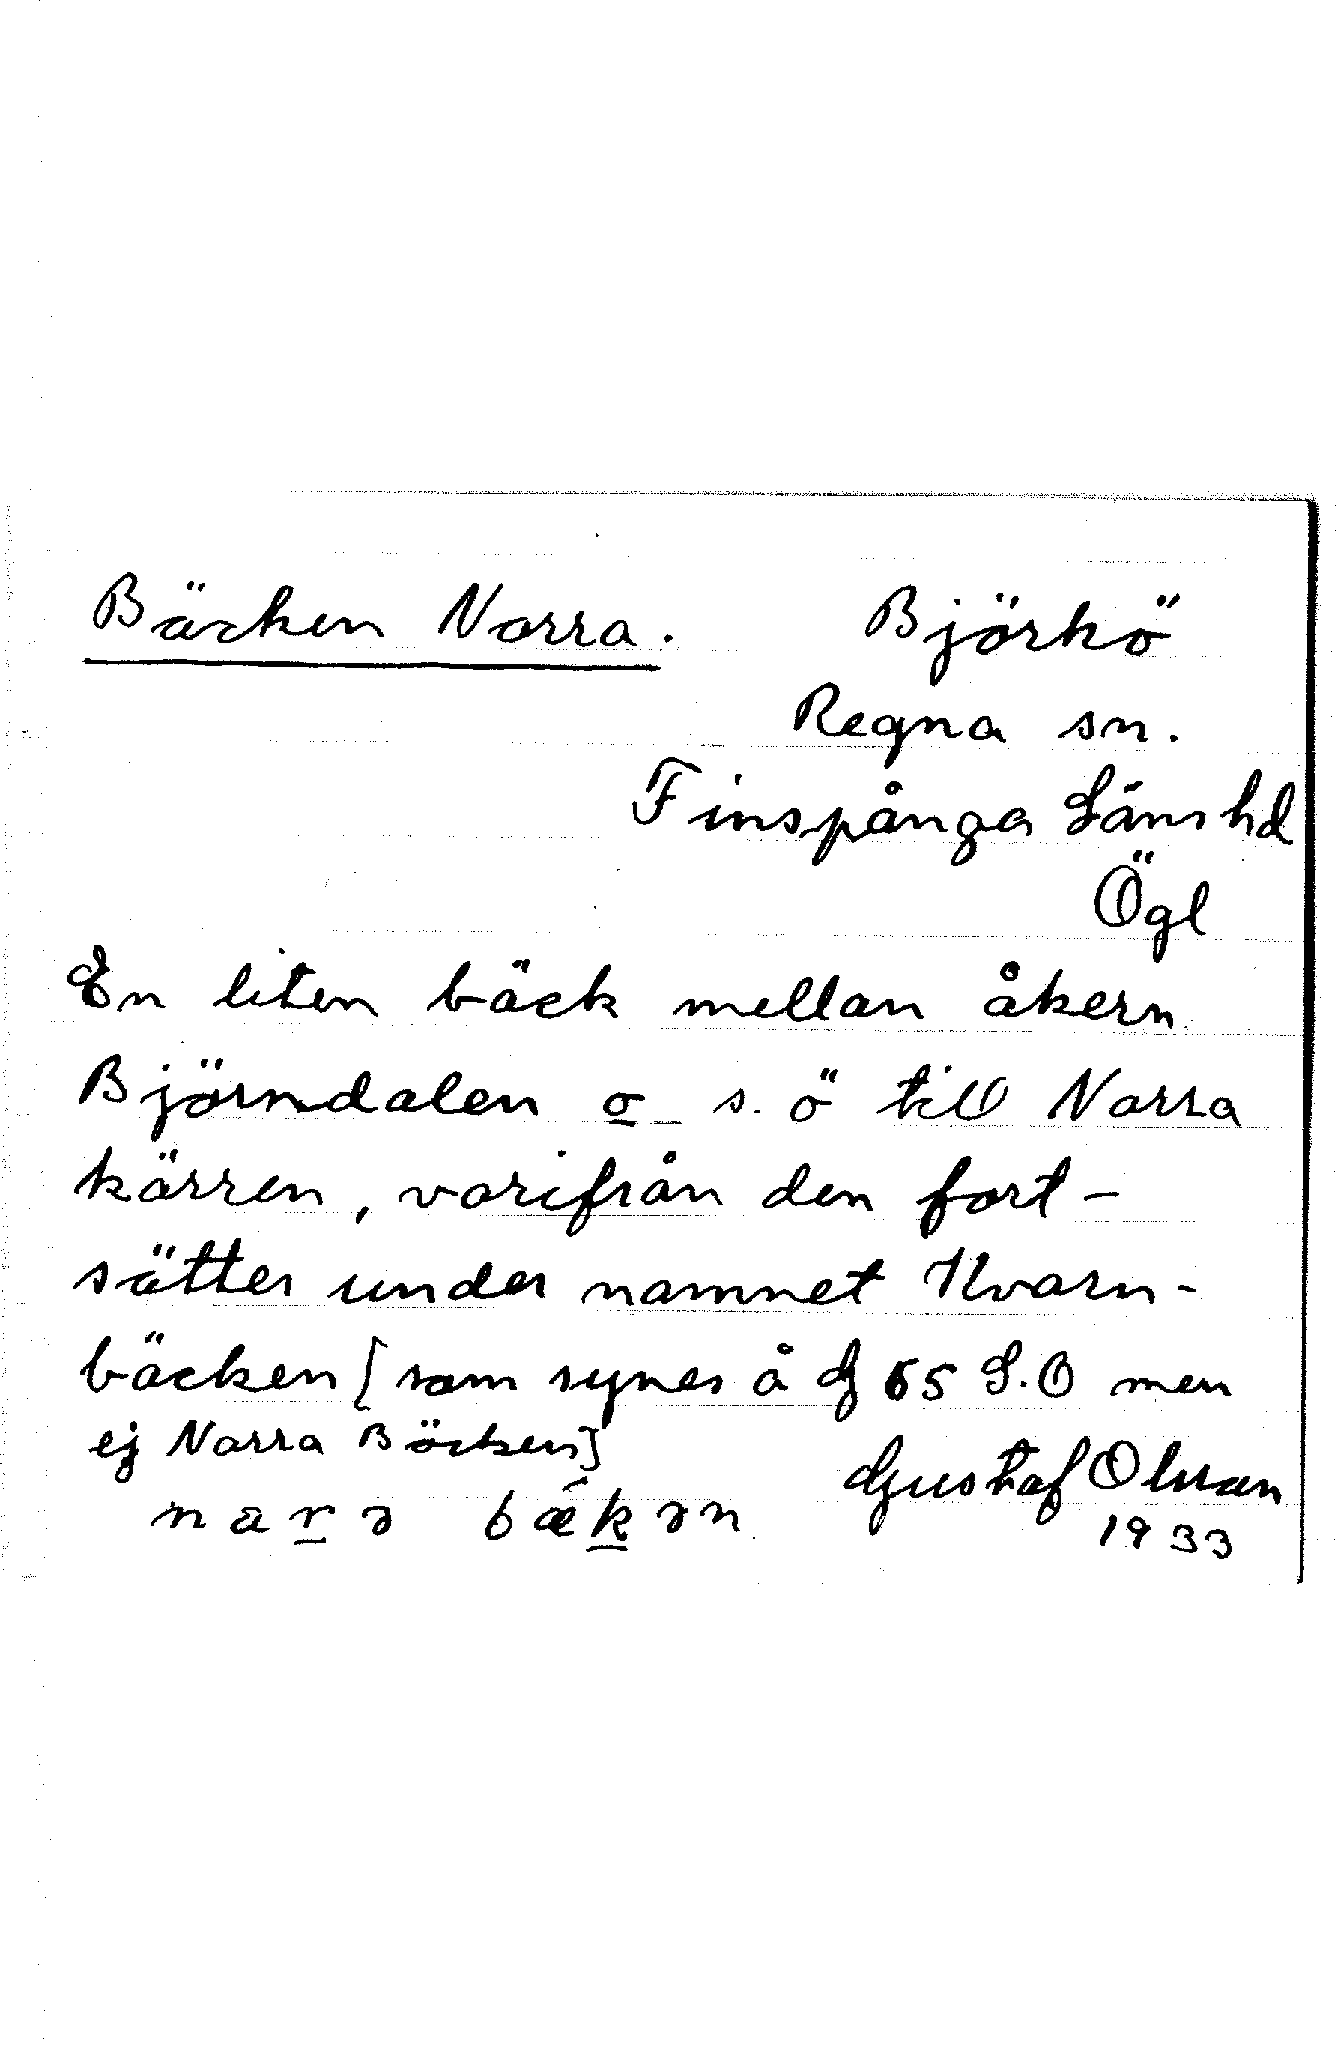 Bäcken Norra. Björkö
Regna sn.
Finspånga Läns hd
Ögl
En liten bäck mellan åkern
Björndalen o s. ö till Norra
kärren, varifrån den fort-
sätter under namnet Kvarn-
bäcken [som synes å G 65 S.O men
ej Norra Bäcken]
Gustaf Olsson
nara bækən
1933